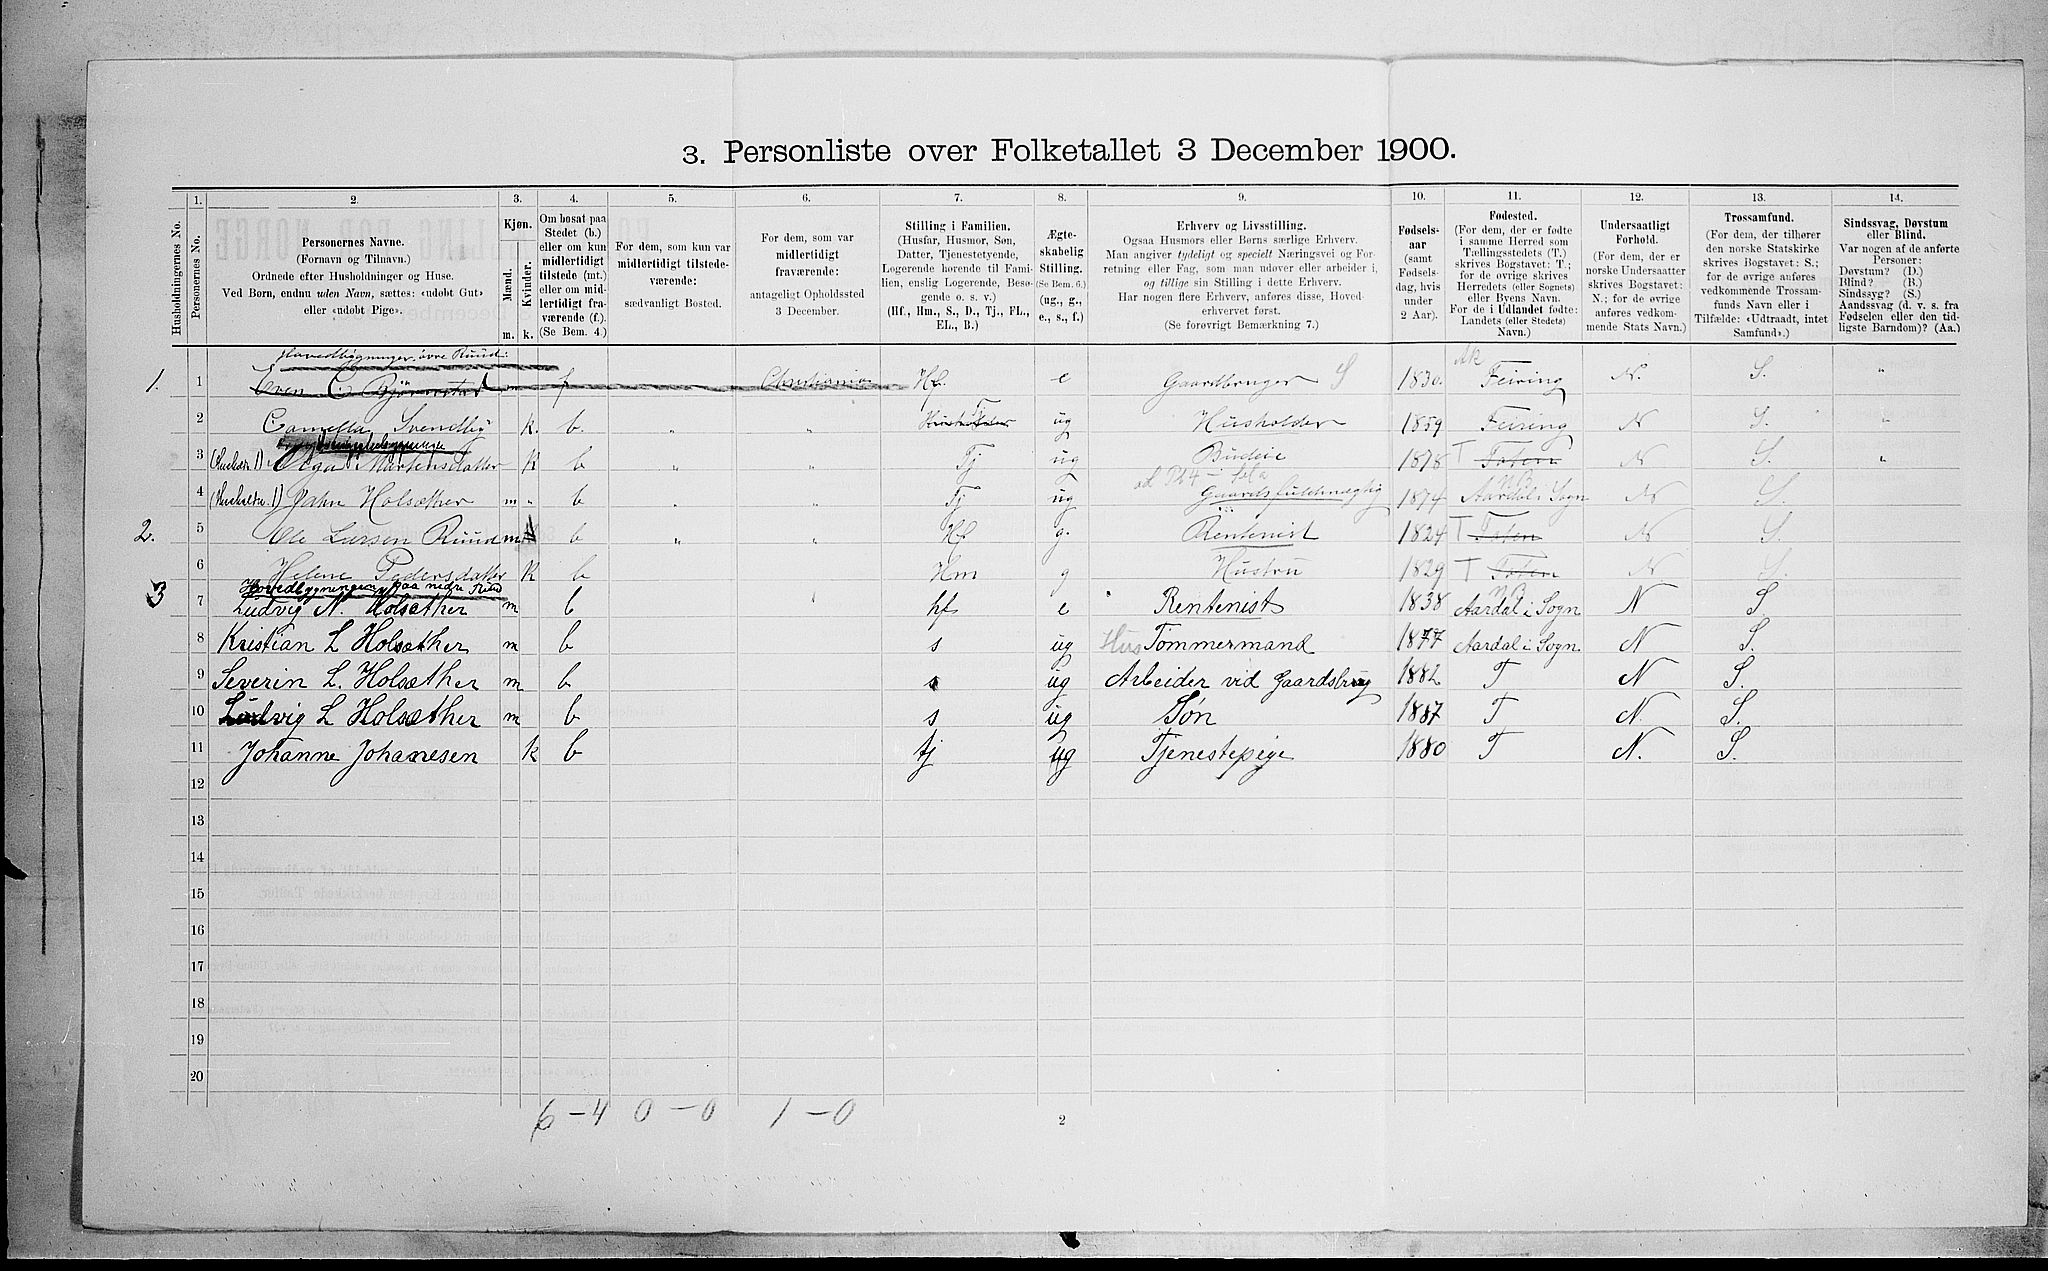 3. Personliste over Folketallet 3 December 1900.
Husholdningernes No.
1.
Personernes No.
2.
Personernes Navne.
(Fornavn og Tilnavn.)
Ordnede efter Husholdninger og Huse.
Ved Børn, endnu uden Navn, sættes: «udøbt Gut»
eller «udøbt Pige».
3.
Kjøn.
Mænd.
Kvinder.
m. k.
4.
Om bosat paa
Stedet (b.)
eller om kun
midlertidigt
tilstede (mt.)
eller om mid-
lertidigt fra-
værende (f.).
(Se Bem. 4.)
5.
For dem, som kun var
midlertidigt tilstede-
værende:
sædvanligt Bosted.
6.
For dem, som var
midlertidigt
fraværende:
antageligt Opholdssted
3 December.
7.
Stilling i Familien.
(Husfar, Husmor, Søn,
Datter, Tjenestetyende,
Logerende hørende til Fami-
lien, enslig Logerende, Besø-
gende o. s. v.)
(Hf., Hm., S., D., Tj., FL.,
EL., B.)
8.
Ægte-
skabelig
Stilling.
(Se Bem. 6.)
(ug., g.,
e., s., f.)
9.
Erhverv og Livsstilling.
Ogsaa Husmors eller Børns særlige Erhverv.
Man angiver tydeligt og specielt Næringsvei og For-
retning eller Fag, som man udøver eller arbeider i,
og tillige sin Stilling i dette Erhverv.
Har nogen flere Erhverv, anføres disse, Hoved-
erhvervet først.
(Se forøvrigt Bemærkning 7.)
10.
Fødsels-
aar
(samt
Fødsels-
dag, hvis
under
2 Aar).
11.
Fødested.
(For dem, der er fødte
i samme Herred som
Tællingsstedets (T.)
skrives Bogstavet: T.;
for de øvrige skrives
Herredets (eller Sognets)
eller Byens Navn.
For de i Udlandet fødte:
Landets (eller Stedets)
Navn.)
12.
Undersaatligt
Forhold.
(For dem, der er
norske Undersaatter
skrives Bogstavet:
N.; for de øvrige
anføres vedkom-
mende Stats Navn.)
13.
Trossamfund.
(For dem, der tilhører
den norske Statskirke
skrives Bogstavet: S.;
for de øvrige anføres
vedkommende Trossam-
funds Navn eller i
Tilfælde: «Udtraadt, intet
Samfund».)
14.
Sindssvag, Døvstum
eller Blind.
Var nogen af de anførte
Personer:
Døvstum? (D.)
Blind? (B.)
Sindssyg? (S.)
Aandssvag (d. v. s. fra
Fødselen eller den tid-
ligste Barndom)? (Aa.)
Hovedbygninger øvre Ruud:
1. 1 Even C. Bjørnstad m f Christiania Hf. e Gaardbruger S 1830. Ak Feiring N. S. "
2 Camella Svendby k. b. " " Tj ug Husholder 1859 Feiring N S. "
3 (Husholdn. 1) Olga Martensdatter k b " " Tj ug Budeie 1878 T Toten N S. "
4 (Husholdn. 1) John Holsæther m " b " " Tj ug Gaardsfuldmægtig 1874 Aardal i Sogn N S.
2. 5 Ole Larsen Ruud m b " " Hf g. Rentenist 1824 T Toten N S.
6 Helene Pedersdatter k b Hm g Hustru 1829 T Toten N S.
Hovedbygningen paa nedre Ruud
3 7 Ludvig N. Holsæther m b hf e Rentenist 1838 Aardal i Sogn N S.
8 Kristian L Holsæther m b s ug Hus Tømmermand 1877 Aardal i Sogn. N S.
9 Severin L. Holsæther m b s ug Arbeider vid Gaardsbrug 1882 T N S.
10 Ludvig L Holsæther m b s ug Søn 1887 T N. S.
11 Johanne Johanesen k b tj ug Tjenestepige 1880 T N. S.
12
13
14
15
16
17
18
19
20
6 – 4 0 – 0 1 – 0
2